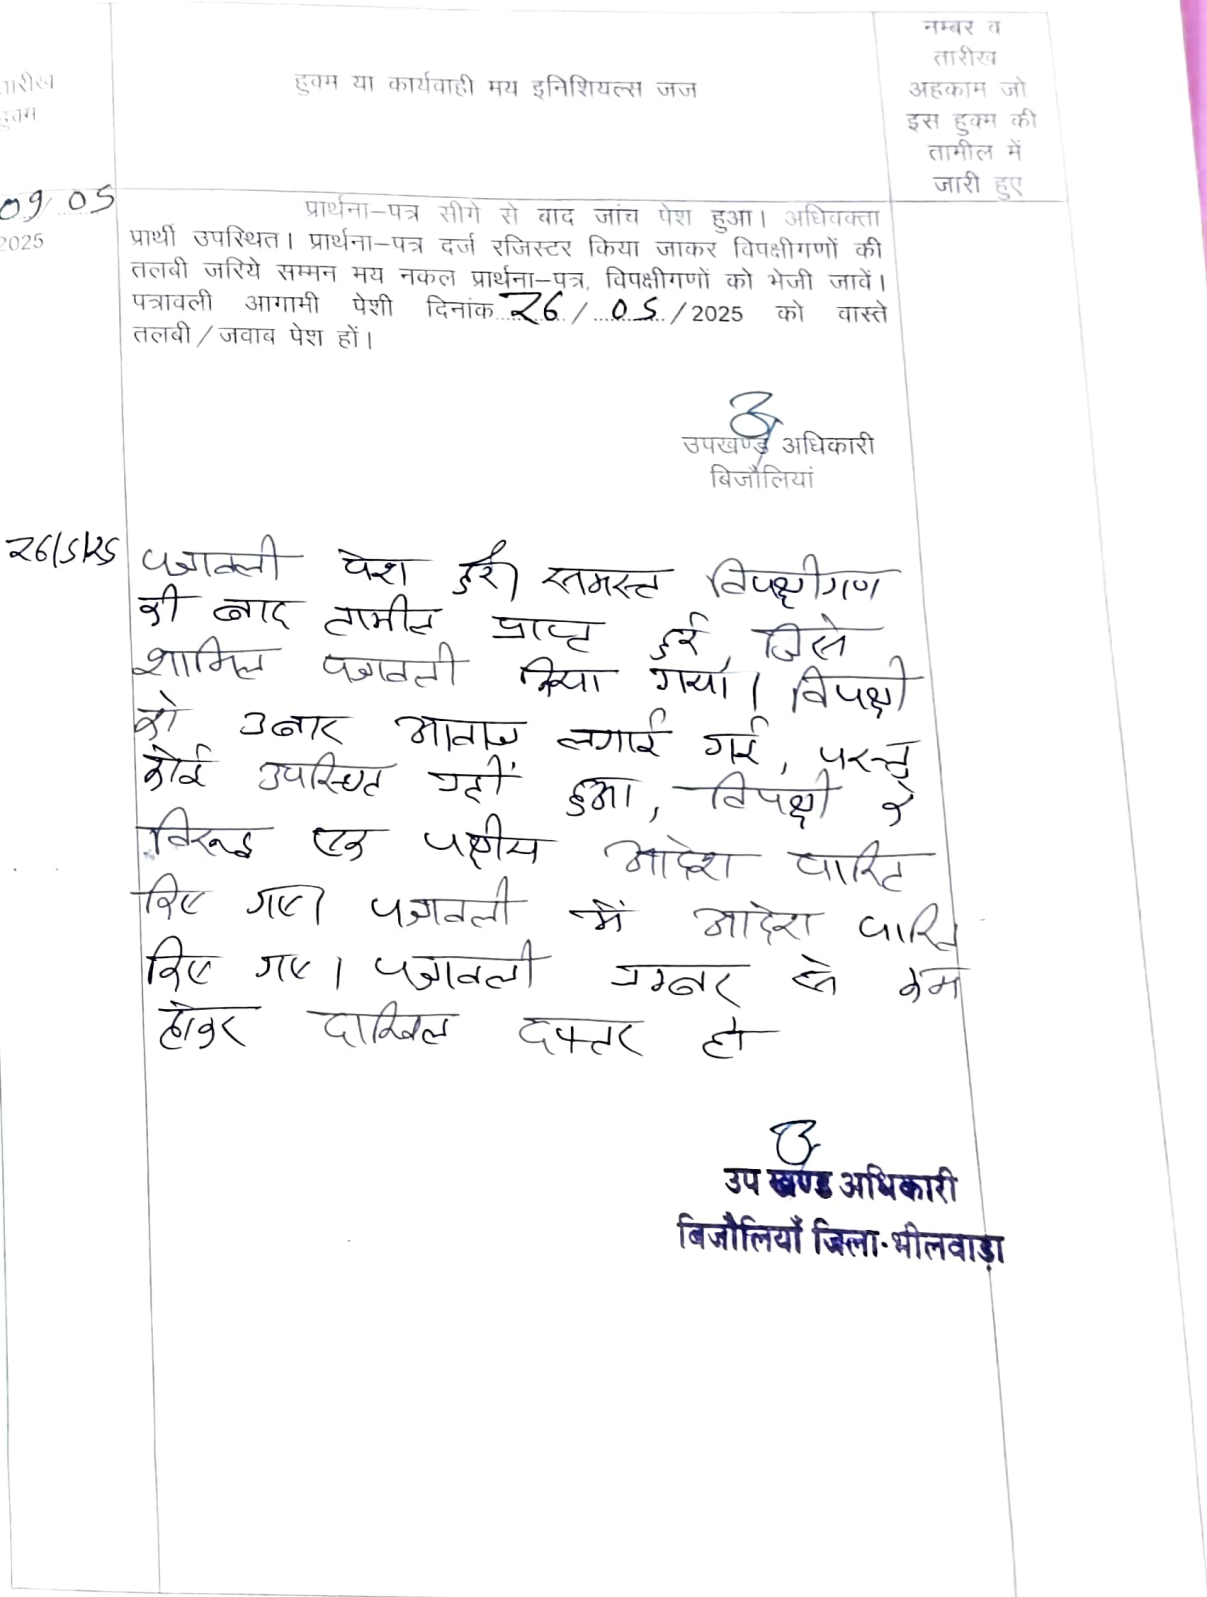 तारीख
हुक्म
हुक्म या कार्यवाही मय इनिशियल्स जज
नम्बर व
तारीख
अहकाम जो
इस हुक्म की
तामील में
जारी हुए
09/05
2025
प्रार्थना-पत्र सीगे से बाद जांच पेश हुआ। अधिवक्ता
प्रार्थी उपस्थित। प्रार्थना-पत्र दर्ज रजिस्टर किया जाकर विपक्षीगणों की
तलबी जरिये सम्मन मय नकल प्रार्थना-पत्र, विपक्षीगणों को भेजी जावें।
पत्रावली आगामी पेशी दिनांक 26/05/2025 को वास्ते
तलबी/जवाब पेश हों।
उपखण्ड अधिकारी
बिजौलियां
26/5/25
पत्रावली पेश हुई। समस्त विपक्षीगण
की बाद तामील प्राप्त हुई, जिसे
शामिल पत्रावली किया गया। विपक्षी
को 3 बार आवाज लगाई गई, परन्तु
कोई उपस्थित नहीं हुआ, विपक्षी के
विरूद्ध एक पक्षीय आदेश पारित
किए गए। पत्रावली में आदेश पारित
किए गए। पत्रावली नम्बर से कम
होकर दाखिल दफ्तर हो
उप खण्ड अधिकारी
बिजौलियाँ जिला-भीलवाड़ा